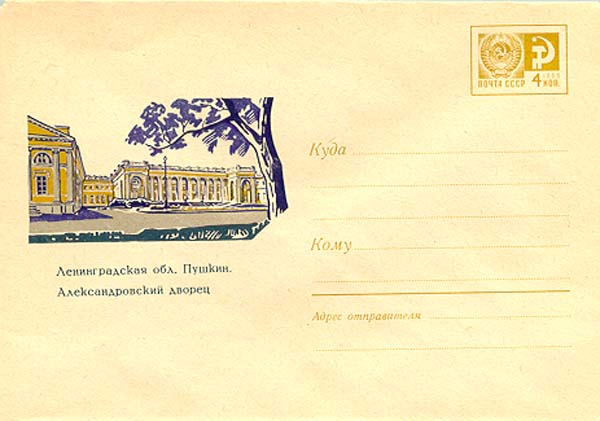 ПОЧТА СССР
4 1966
КОП.
Куда
Кому
Адрес отправителя
Ленинградская обл. Пушкин.
Александровский дворец